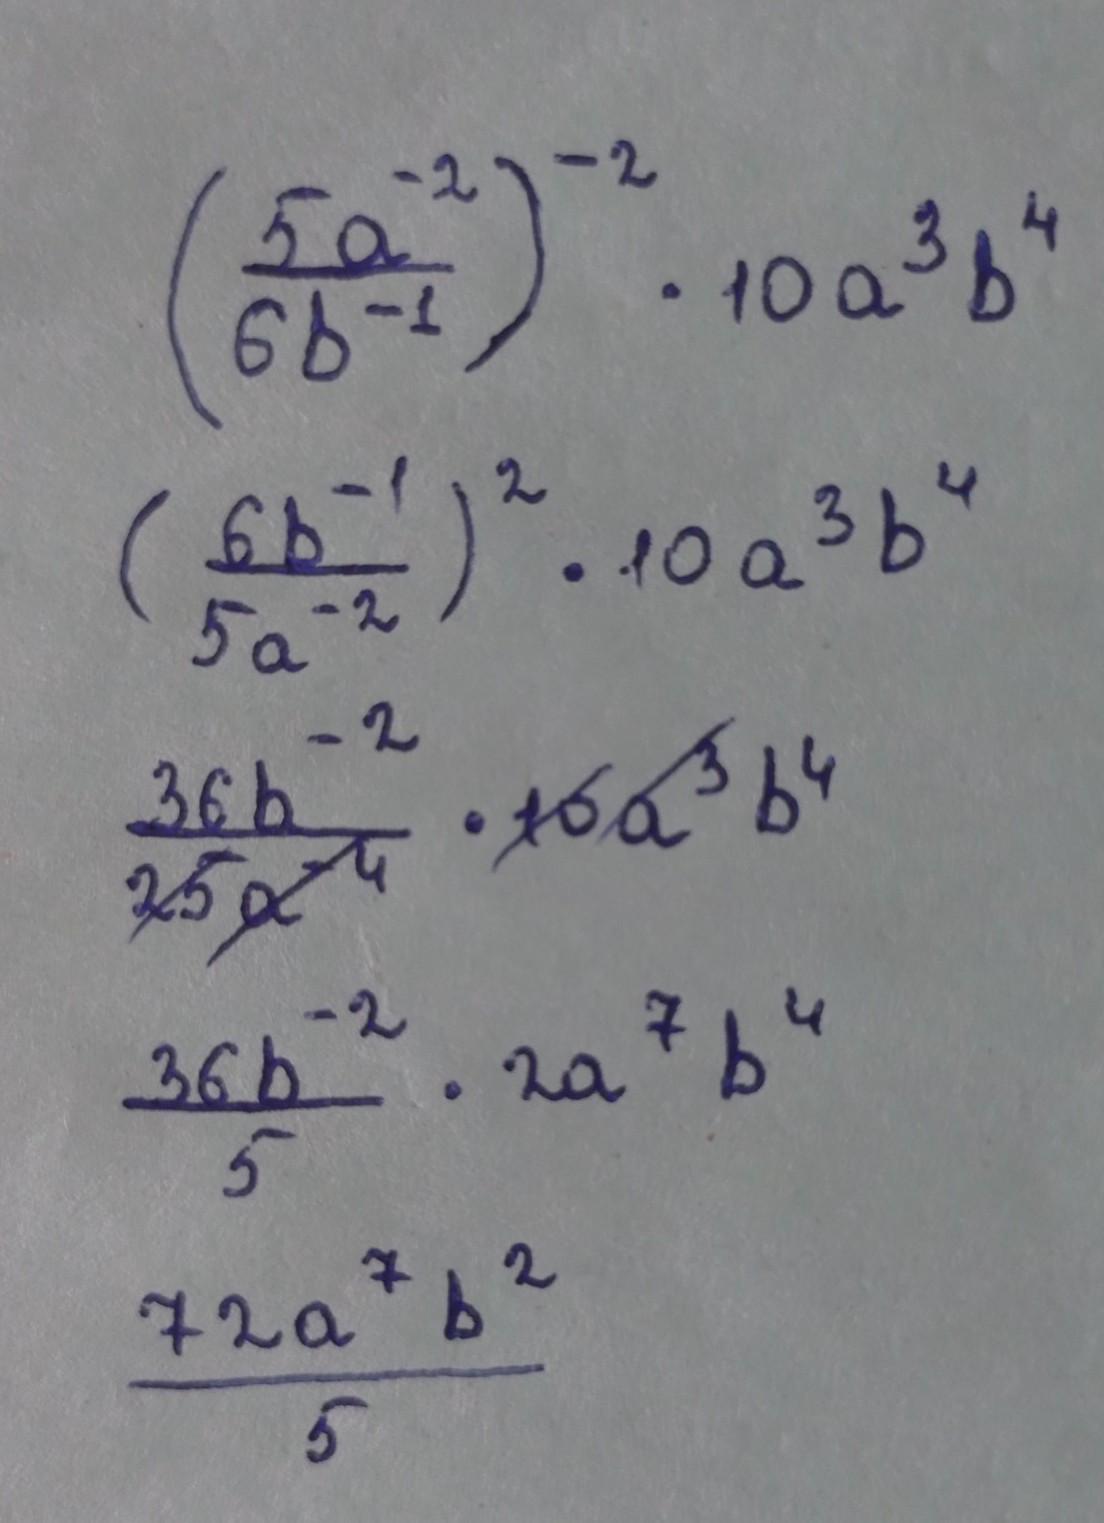 (5a⁻²/6b⁻¹)⁻² · 10a³b⁴
(6b⁻¹/5a⁻²)² · 10a³b⁴
36b⁻²/25a⁻⁴ · 10a³b⁴
36b⁻²/5 · 2a⁷b⁴
72a⁷b²/5